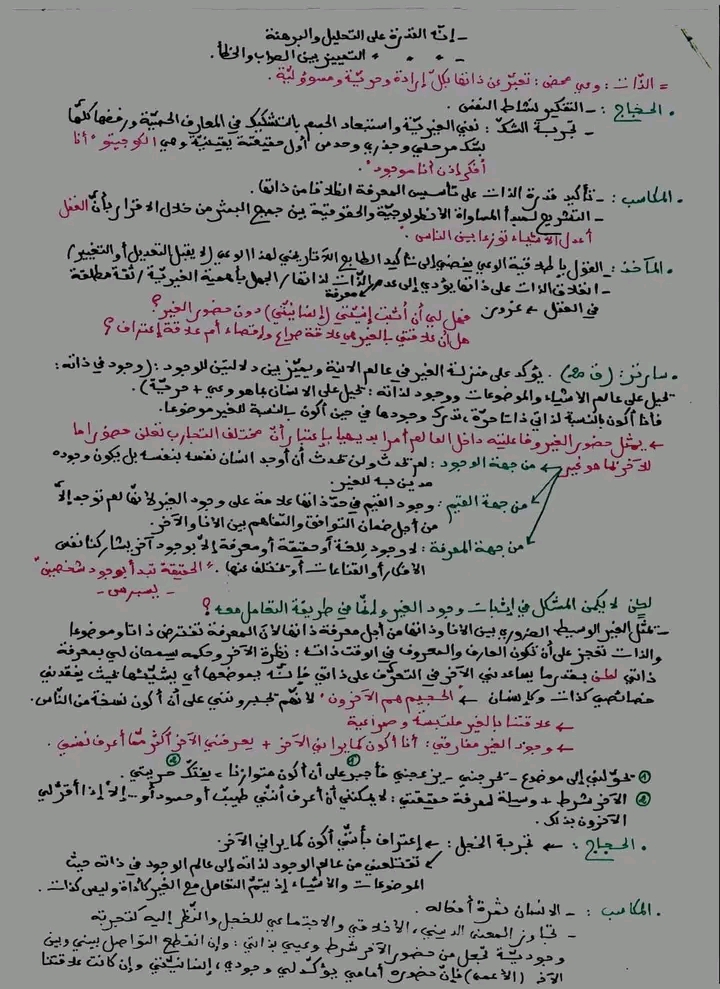 - إنّه القدرة على التحليل والبرهنة
- " " " التمييز بين الصواب والخطأ.
= الذّات: وعي محض: تعبّر عن ذاتها بكلّ إرادة وحريّة ومسؤوليّة.
• الحجاج: - التفكير كنشاط النفس.
- تجربة الشكّ: نفي الغيريّة واستبعاد الجسم بالتشكيك في المعارف الحسيّة ورفضها كلّها
بشكّ مرحلي وجذري وحدس أول حقيقة يقينيّة وهي الكوجيتو "أنا
أفكر إذن أنا موجود".
• المكاسب: - تأكيد قدرة الذات على تأسيس المعرفة انطلاقا من ذاتها.
- التشريع لمبدأ المساواة الأنطولوجيّة والحقوقية بين جميع البشر من خلال الإقرار بأنّ "العقل
أعدل الأشياء توزعا بين الناس".
• المآخذ: - القول بإطلاقية الوعي يفضي إلى تأكيد الطابع اللاتاريخي لهذا الوعي (لا يقبل التعديل أو التغيير)
- انغلاق الذات على ذاتها يؤدي إلى عدم معرفة الذّات لذاتها / الجهل بأهمية الغيريّة / ثقة مطلقة
في العقل ← غرور
فهل لي أن أثبت إنيّتي (إنسانيّتي) دون حضور الغير؟
هل أن علاقتي بالغير هي علاقة صراع وإقصاء أم علاقة إعتراف؟
• سارتر: (ق 20). يؤكد على منزلة الغير في عالم الإنية ويميّز بين دلالتين للوجود: (وجود في ذاته:
تحيل على عالم الأشياء والموضوعات ووجود لذاته: تحيل على الإنسان بما هو وعي + حريّة).
فأنا أكون بالنسبة لذاتي ذاتا حرّة، تدرك وجودها في حين أكون بالنسبة للغير موضوعا.
← يمثل حضور الغير وفاعليته داخل العالم أمرا بديهيا بإعتبار أنّ مختلف التجارب تعلن حضورا ما
للآخر بما هو غير
← من جهة الوجود: لم تحدث ولن تحدث أن أوجد انسان نفسه بنفسه بل يكون وجوده
مدين به للغير.
← من جهة القيم: وجود القيم في حدّ ذاتها علامة على وجود الغير لأنها لم توجد إلّا
من أجل ضمان التوافق والتفاهم بين الأنا والآخر.
← من جهة المعرفة: لا وجود للغة أو حقيقة أو معرفة إلّا بوجود آخر يشاركنا نفس
الأفكار أو القناعات أو تختلف عنها. "الحقيقة تبدأ بوجود شخصين"
- يسبرس -
لكن لا يكمن المشكل في إثبات وجود الغير وإنما في طريقة التعامل معه؟
- يمثّل الغير الوسيط الضروري بين الأنا وذاتها من أجل معرفة ذاتها لأنّ المعرفة تفترض ذاتا وموضوعا
والذات تعجز على أن تكون العارف والمعروف في الوقت ذاته: نظرة الآخر وحكمه يسمحان لي بمعرفة
ذاتي لكن بقدر ما يساعدني الآخر في التعرّف على ذاتي فإنّه بموضعها أي يشيّئها بحيث يفقدني
خصائصي كذات وكإنسان ← "الجحيم هم الآخرون" لأنّهم يجبرونني على أن أكون نسخة من الناس.
← علاقتنا بالغير ملتبسة وصراعية
← وجود الغير مفارقتي: أنا أكون كما يراني الآخر + يعرفني الآخر أكثر ممّا أعرف نفسي.
① تحوّلني إلى موضوع - تحرجني - يزعجني فأجبر ① على أن أكون متوازنا = يفتكّ حريتي ②.
② الآخر شرط + وسيلة لمعرفة حقيقتي: لا يمكنني أن أعرف أنّني طيبٌ أو حسود أو... إلّا إذا أقرّ لي
الآخرون بذلك.
• الحجاج: ← تجربة الخجل: ← إعتراف بأنّني أكون كما يراني الآخر.
← تقتلعني من عالم الوجود لذاته إلى عالم الوجود في ذاته حيث
الموضوعات والأشياء إذ يتمّ التعامل مع الغير كأداة وليس كذات.
• المكاسب: - الإنسان ثمرة أفعاله.
- تجاوز المعنى الديني، الأخلاقي والاجتماعي للخجل والنّظر إليه كتجربة
وجوديّة تجعل من حضور الآخر شرط وعيي بذاتي: وإن انقطع التواصل بيني وبين
الآخر (الأعمى) فإنّ حضوره أمامي يؤكّد لي وجودي، إنسانيّتي وإن كانت علاقتنا